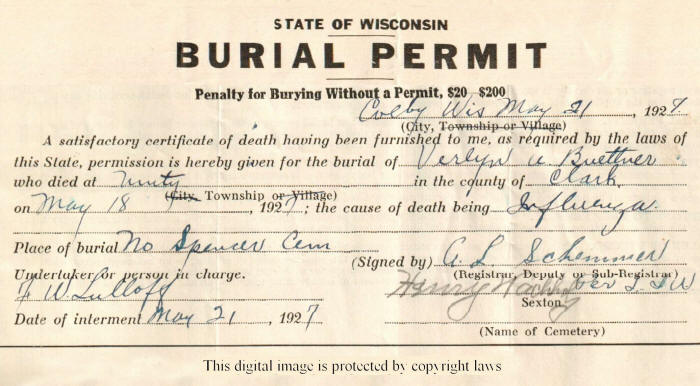 STATE OF WISCONSIN
BURIAL PERMIT
Penalty for Burying Without a Permit, $20 $200
Colby Wis May 21, 1927
(City, Township or Village)
A satisfactory certificate of death having been furnished to me, as required by the laws of
this State, permission is hereby given for the burial of Verlyn A Buettner
who died at Unity in the county of Clark
(City, Township or Village)
on May 18, 1927; the cause of death being Influenza
Place of burial No Spencer Cem
(Signed by) A. L. Schemmer
(Registrar, Deputy or Sub-Registrar)
Undertaker or person in charge.
F W Lulloff
Henry
Sexton
Date of interment May 21, 1927
(Name of Cemetery)
This digital image is protected by copyright laws